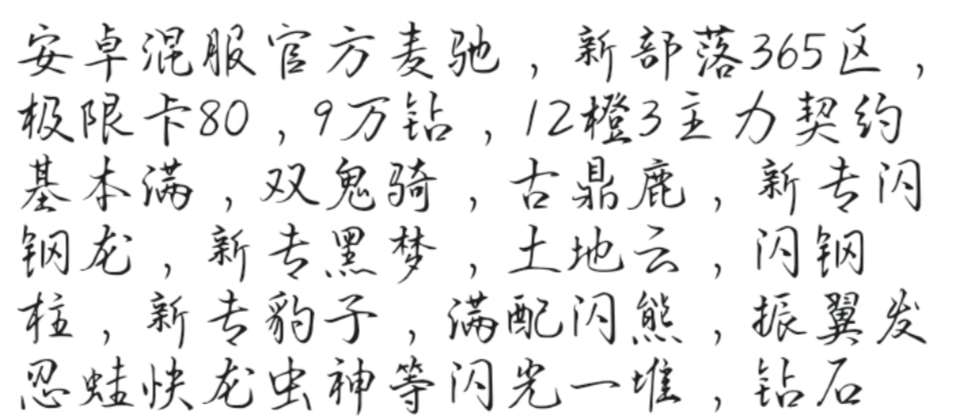 安卓混服官方麦驰，新部落365区，
极限卡80，9万钻，12橙3主力契约
基本满，双鬼骑，古鼎鹿，新专闪
钢龙，新专黑梦，土地云，闪钢
柱，新专豹子，满配闪熊，振翼发
忍蛙快龙虫神等闪光一堆，钻石